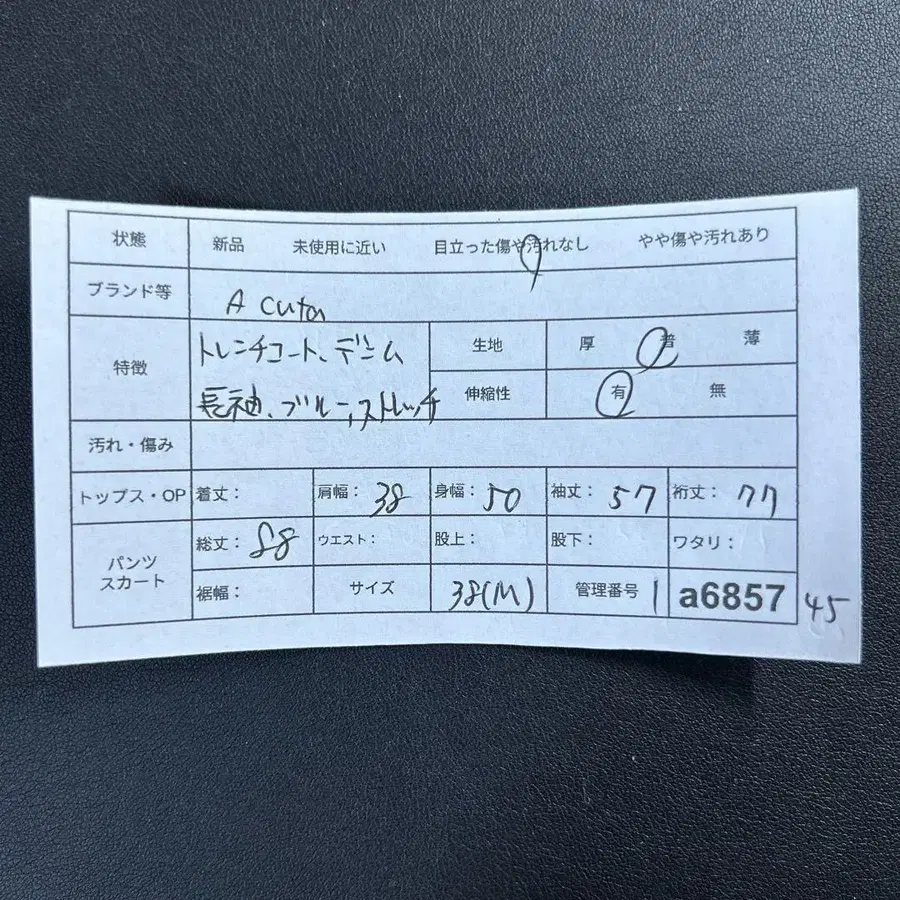 状態 新品 未使用に近い 目立った傷や汚れなし やや傷や汚れあり
ブランド等 A cuta
特徴 トレンチコート、デニム 生地 厚 普 薄
長袖、ブルー、ストレッチ 伸縮性 有 無
汚れ・傷み
トップス・OP 着丈： 肩幅：38 身幅：50 袖丈：57 裄丈：77
パンツ スカート 総丈：88 ウエスト： 股上： 股下： ワタリ：
裾幅： サイズ 38(M) 管理番号 1 a6857 45